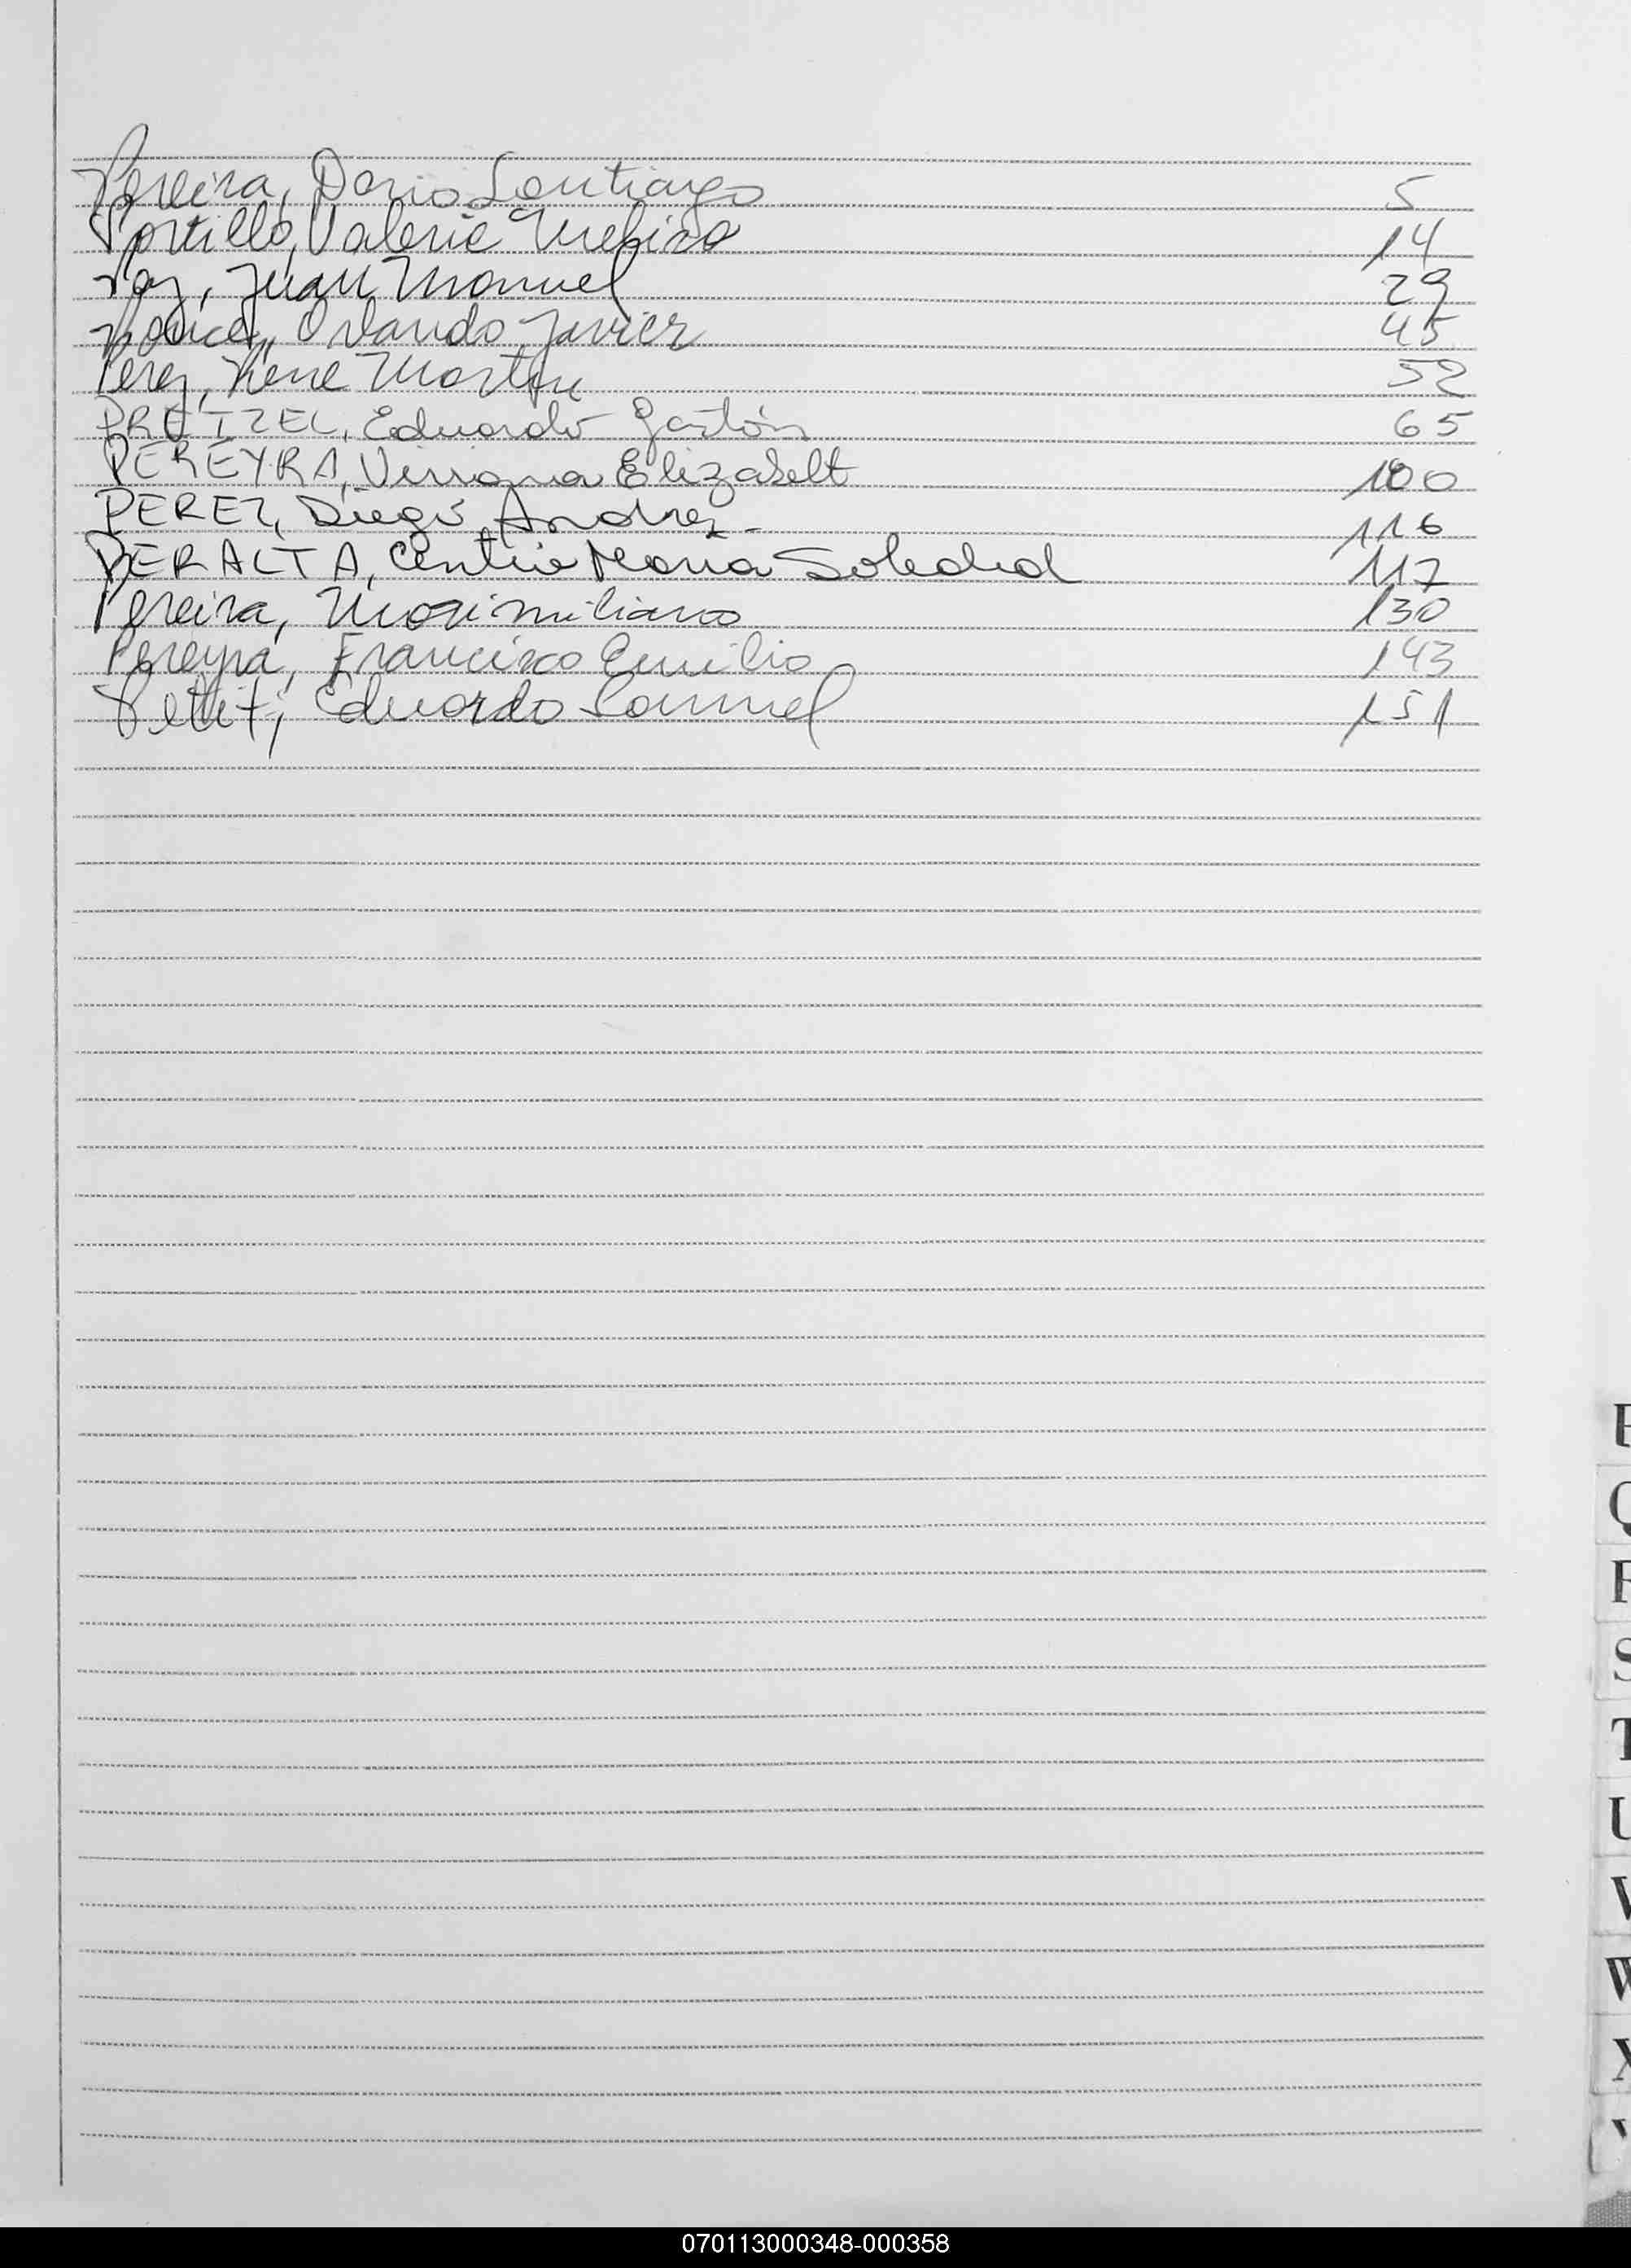 Pereira, Dario Santiago 5
Portillo, Valeria 14
Paz, Juan Manuel 29
Ponce, Orlando Javier 45
Perez, Rene Martin 52
PRETZEL, Eduardo Gastón 65
PEREYRA, Viviana Elizabelt 100
PEREZ, Diego Andres 116
PERALTA, Cintia Maria Soledad 117
Pereira, Maximiliano 130
Pereyra, Francisco Emilio 143
Pettit, Eduardo Samuel 151
Q
R
S
T
U
V
W
X
070113000348-000358